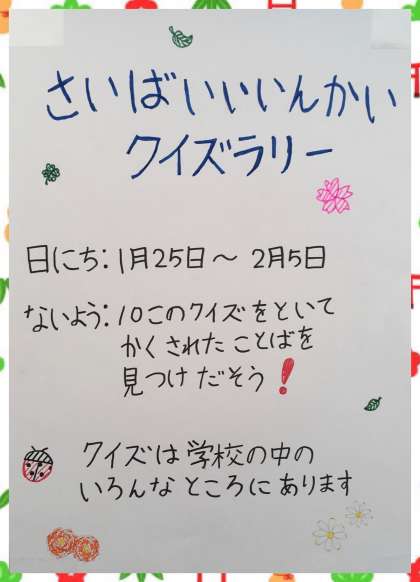 さいばいいいんかい
クイズラリー
日にち:1月25日～2月5日
ないよう:10このクイズをといて
かくされたことばを
見つけだそう!
クイズは学校の中の
いろんなところにあります